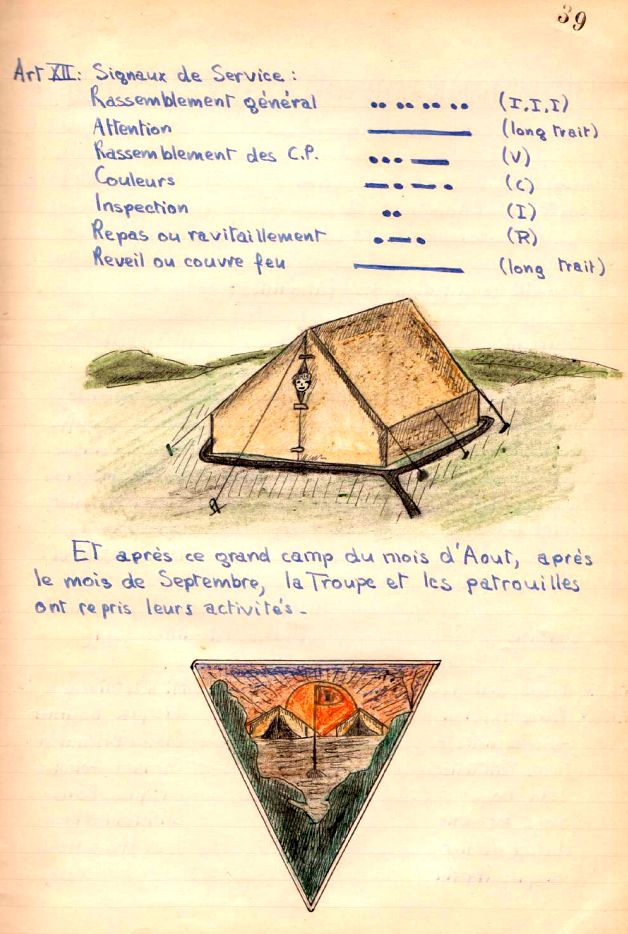 39
Art XII: Signaux de Service :
Rassemblement général •• •• •• •• (I,I,I)
Attention —— (long trait)
Rassemblement des C.P. •••— (V)
Couleurs —•—• (C)
Inspection •• (I)
Repas ou ravitaillement •—• (R)
Reveil ou couvre feu —— (long trait)
Et après ce grand camp du mois d'Aout, après
le mois de Septembre, la Troupe et les patrouilles
ont repris leurs activités.